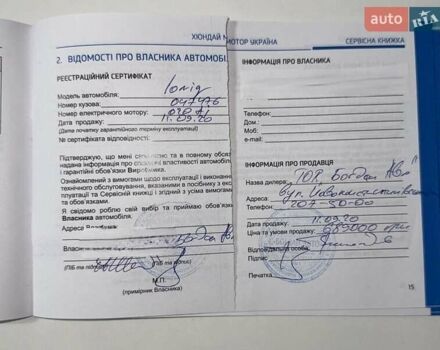 auto RIA
ХЮНДАЙ МОТОР УКРАЇНА
СЕРВІСНА КНИЖКА
2. ВІДОМОСТІ ПРО ВЛАСНИКА АВТОМОБІЛ
РЕЄСТРАЦІЙНИЙ СЕРТИФІКАТ
Модель автомобіля:
Номер кузова: 047476
Номер електричного мотору:
Дата продажу: 11.09.20
(Дата початку гарантійного терміну експлуатації)
№ сертифіката відповідності:
Підтверджую, що мені
та в повному обсязі
надана інформація про
властивості автомобіля
і гарантійні обов'язки Виробника.
Ознайомлений з вимогами щодо експлуатації і виконання
технічного обслуговування, вказаними в посібнику з експ
та Сервісній книжці і згідний з усіма вимогами
та обов'язками.
Я свідомо роблю свій вибір та приймаю
Власника автомобіля.
Адреса
Власник
(ПІБ та підпис)
(ПІБ та підпис)
М.П.
(примірник Власника)
ІНФОРМАЦІЯ ПРО ВЛАСНИКА
Телефон:
Дом:
Моб:
e-mail:
ІНФОРМАЦІЯ ПРО ПРОДАВЦЯ
Назва дилера: Богдан Авто
Адреса: вул.
Телефон: 207-50-00
Дата продажу: 11.09.20
Ціна та умови продажу: 689000 грн
Відповідальна особа:
Підпис
Печатка
15